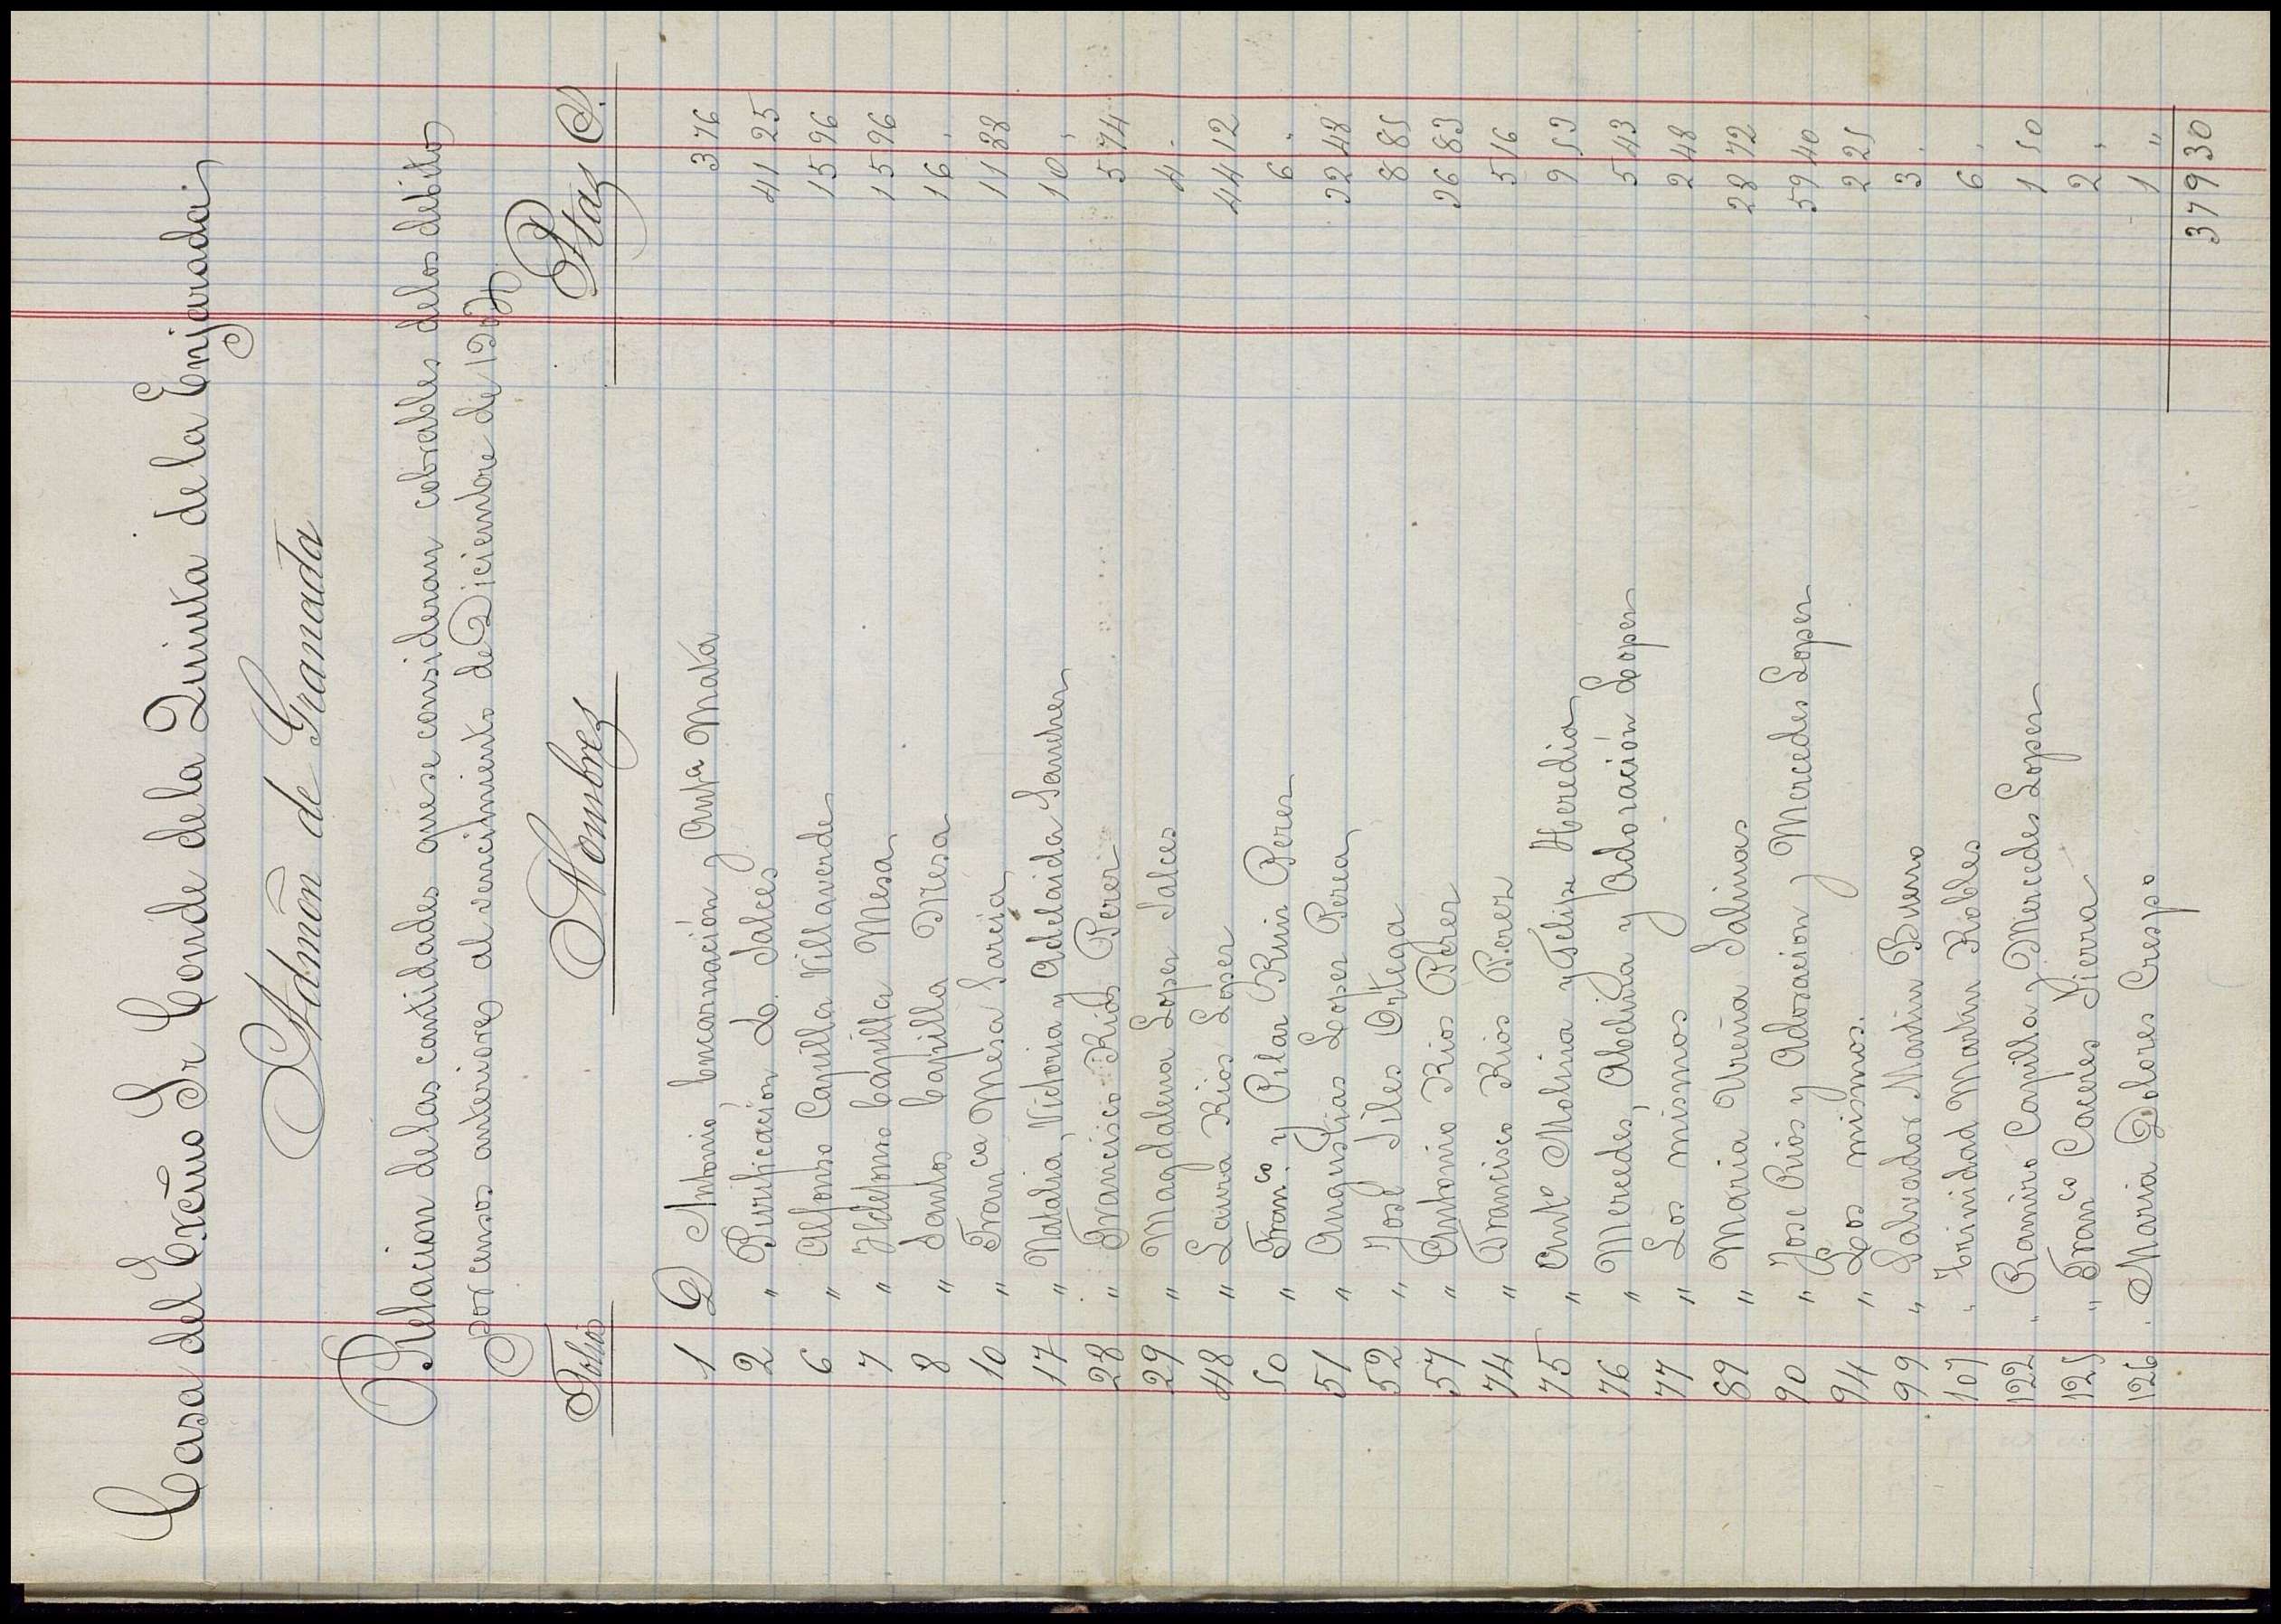 Casa del Excmo Sr Conde de la Quinta de la Enjarada
Admón de Granada
Relacion de las cantidades que se consideran cobrables de los debitos
por censos anteriores al vencimiento de Diciembre de
Folios Nombres Ptas C.
1 D Antonio Encarnación y Antª Mata 3 76
2 " Purificación L. Salces 41 25
6 " Alfonso Capilla Villaverde 15 96
7 " Ildefonso Capilla Mesa 15 96
8 " Santos Capilla Mesa 16 "
10 " Franca Mesa Garcia 11 38
17 " Natalia, Victoria y Adelaida Sanchez 10 "
28 " Francisco Rios Perez 5 74
29 " Magdalena Lopez Salces 4 "
48 " Laura Rios Lopez 44 12
50 " Franco y Pilar Ruiz Perez 6 "
51 " Angustias Lopez Perea 22 48
52 " José Siles Ortega 8 85
57 " Antonio Rios Perez 26 83
74 " Francisco Rios Perez 5 16
75 " Antº Molina y Felipe Heredia 9 53
76 " Mercedes, Abelina y Adoración Lopez 5 43
77 " Los mismos 2 48
89 " Maria Ureña Salinas 28 72
90 " Jose Rios y Adoracion y Mercedes Lopez 59 40
94 " Los mismos. 2 25
99 " Salvador Martin Bueno 3 "
107 " Trinidad Martin Robles 6 "
122 " Ramiro Capilla y Mercedes Lopez 1 50
125 " Franco Caceres Sierra 2 "
126 " Maria Dolores Crespo 1 "
379 30